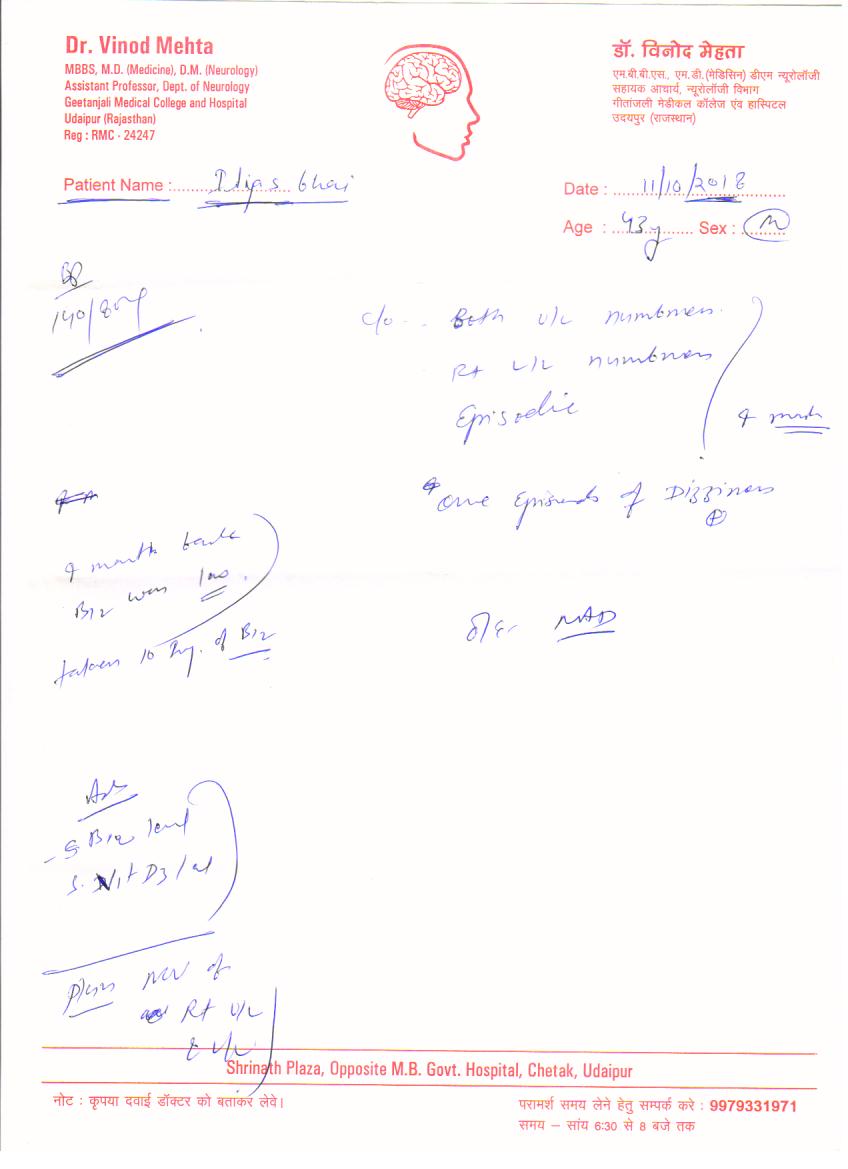 Dr. Vinod Mehta
MBBS, M.D. (Medicine), D.M. (Neurology)
Assistant Professor, Dept. of Neurology
Geetanjali Medical College and Hospital
Udaipur (Rajasthan)
Reg : RMC - 24247
डॉ. विनोद मेहता
एम.बी.बी.एस., एम.डी.(मेडिसिन) डीएम न्यूरोलॉजी
सहायक आचार्य, न्यूरोलॉजी विभाग
गीतांजली मेडीकल कॉलेज एंव हास्पिटल
उदयपुर (राजस्थान)
Patient Name : Iliyas bhai
Date : 11/10/2018
Age : 43y Sex : M
BP
140/80
c/o - Both U/L numbness
Rt L/L numbness
Episodic
4 month
One Episode of Dizziness
4 month back
B12 was 100
taken 10 Inj. of B12
O/E - NAD
Adv
S. B12 level
S. Vit D3
Plan NCV of
Rt U/L
& L/L
Shrinath Plaza, Opposite M.B. Govt. Hospital, Chetak, Udaipur
नोट : कृपया दवाई डॉक्टर को बताकर लेवे।
परामर्श समय लेने हेतु सम्पर्क करे : 9979331971
समय – सांय 6:30 से 8 बजे तक